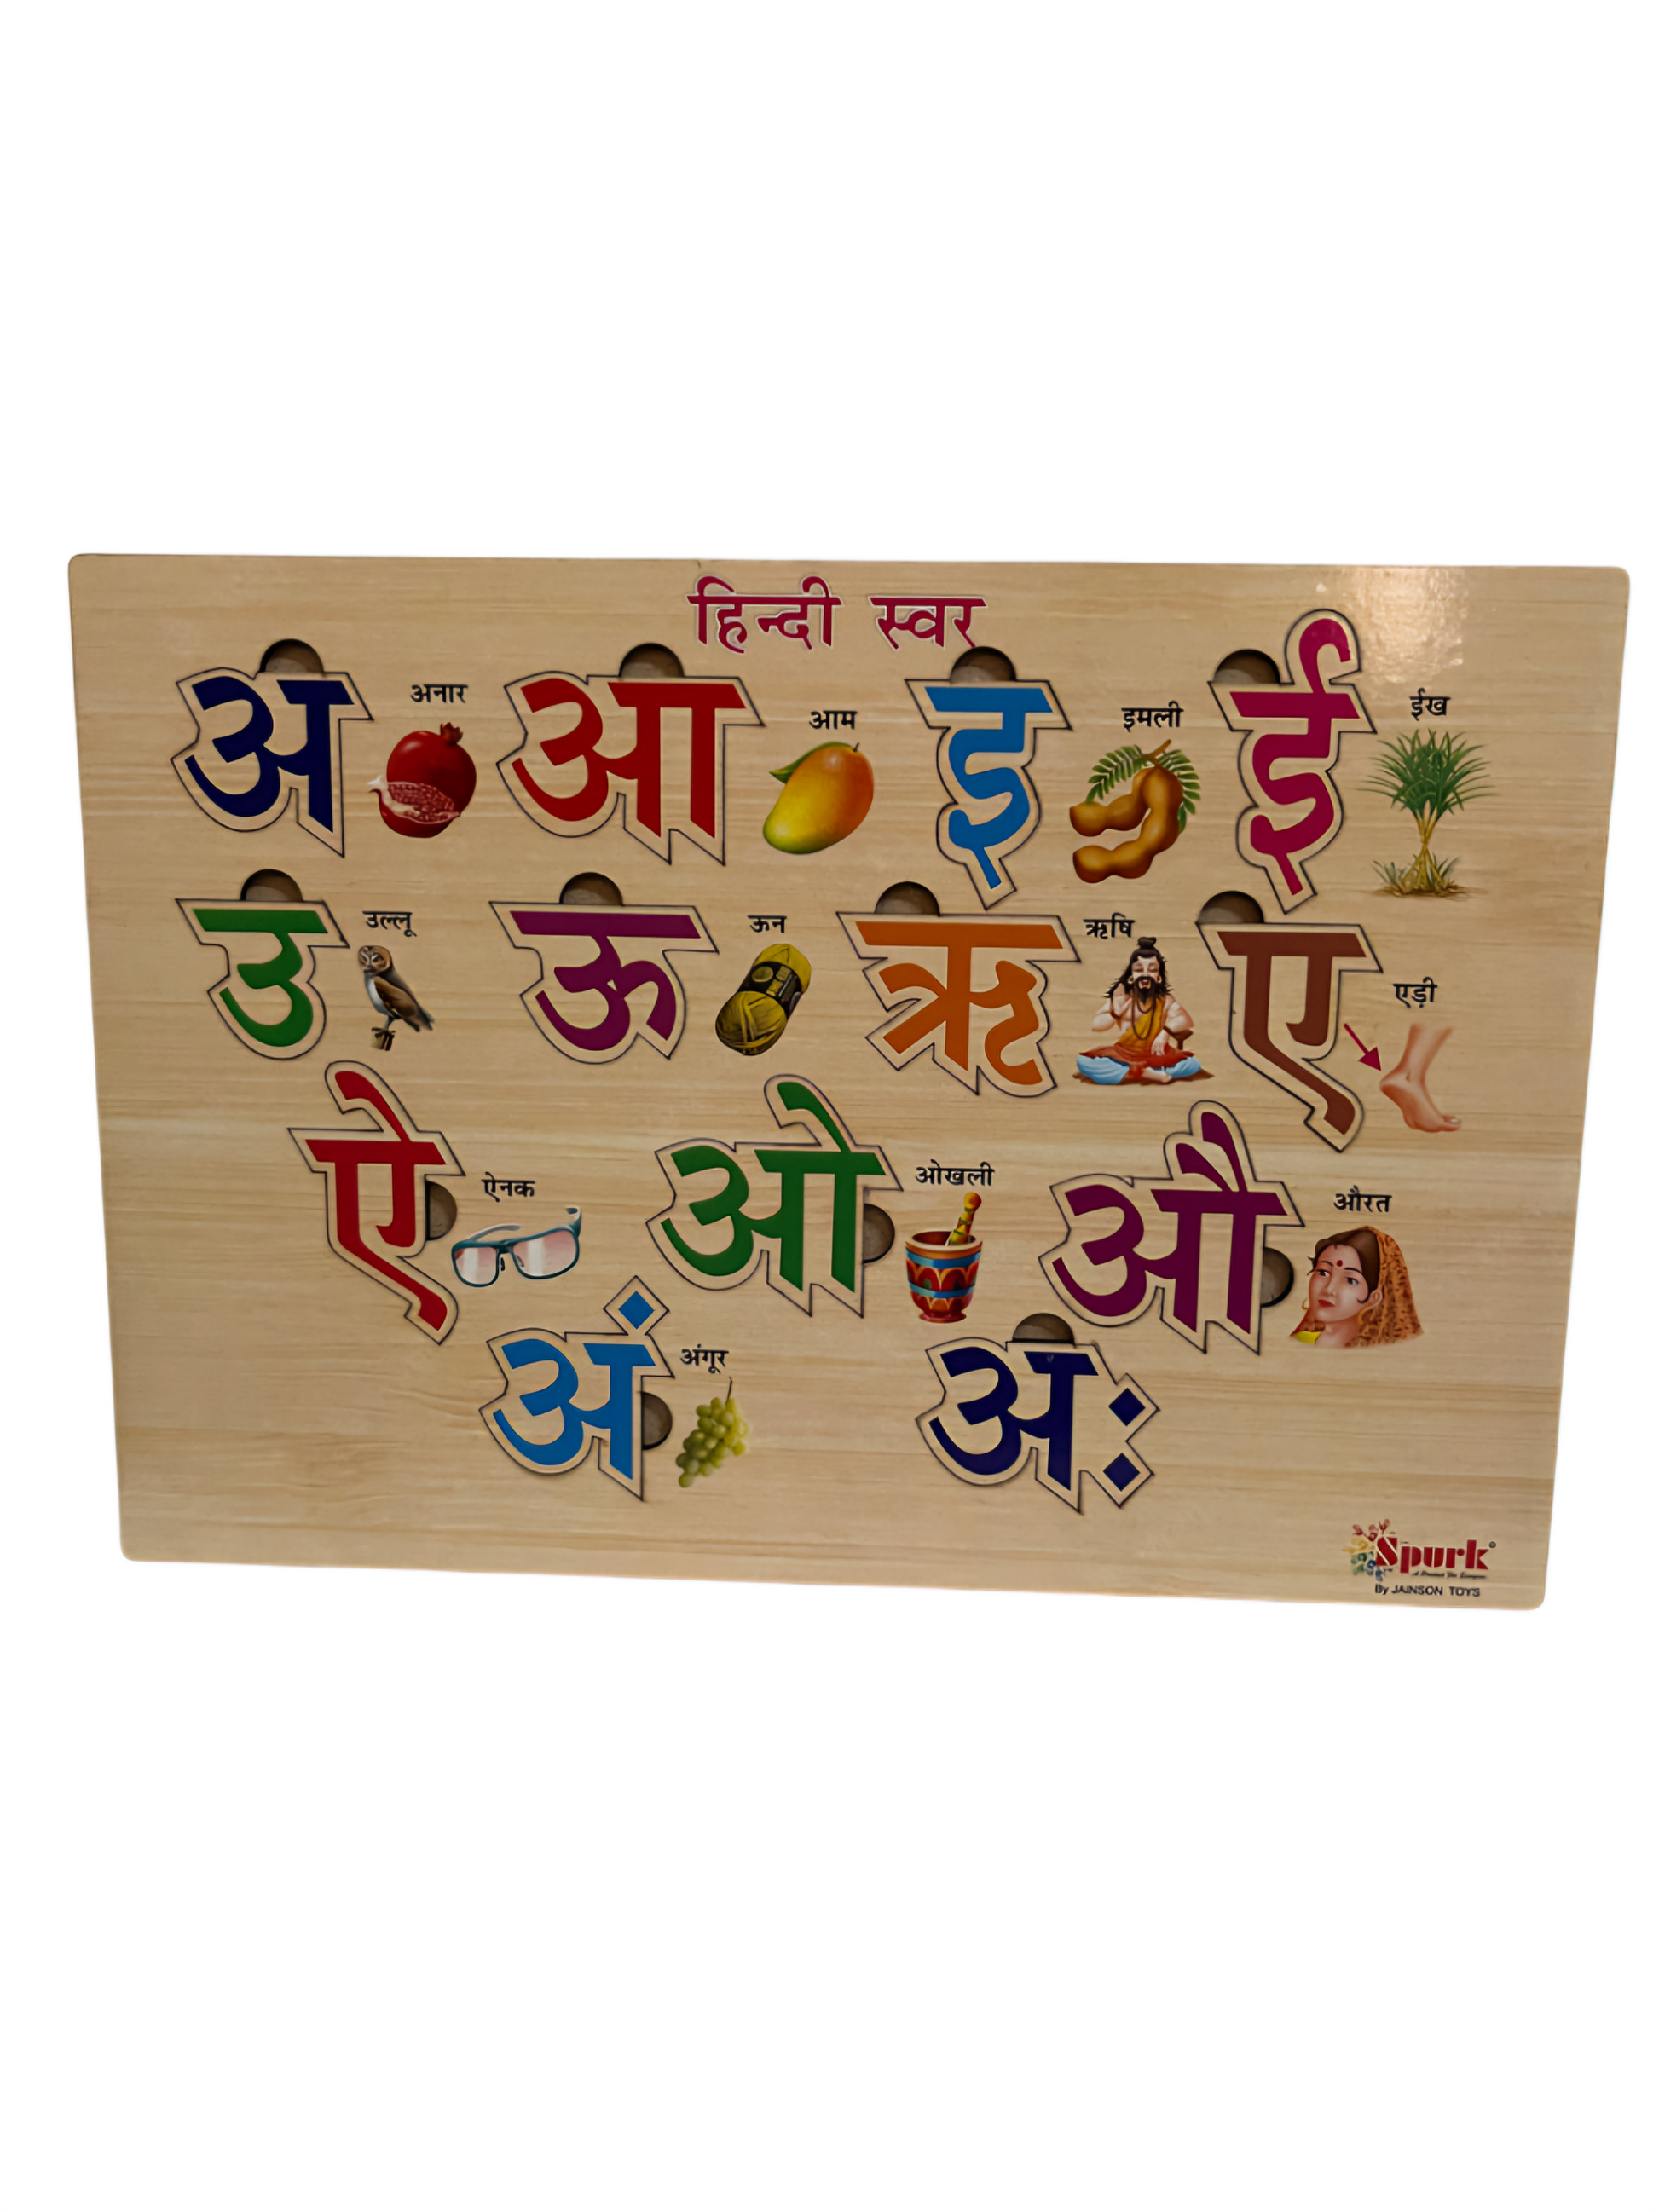 हिन्दी स्वर
अ अनार आ आम इ इमली ई ईख
उ उल्लू ऊ ऊन ऋ ऋषि ए एड़ी
ऐ ऐनक ओ ओखली औ औरत
अं अंगूर अः
Spurk
By JAINSON TOYS